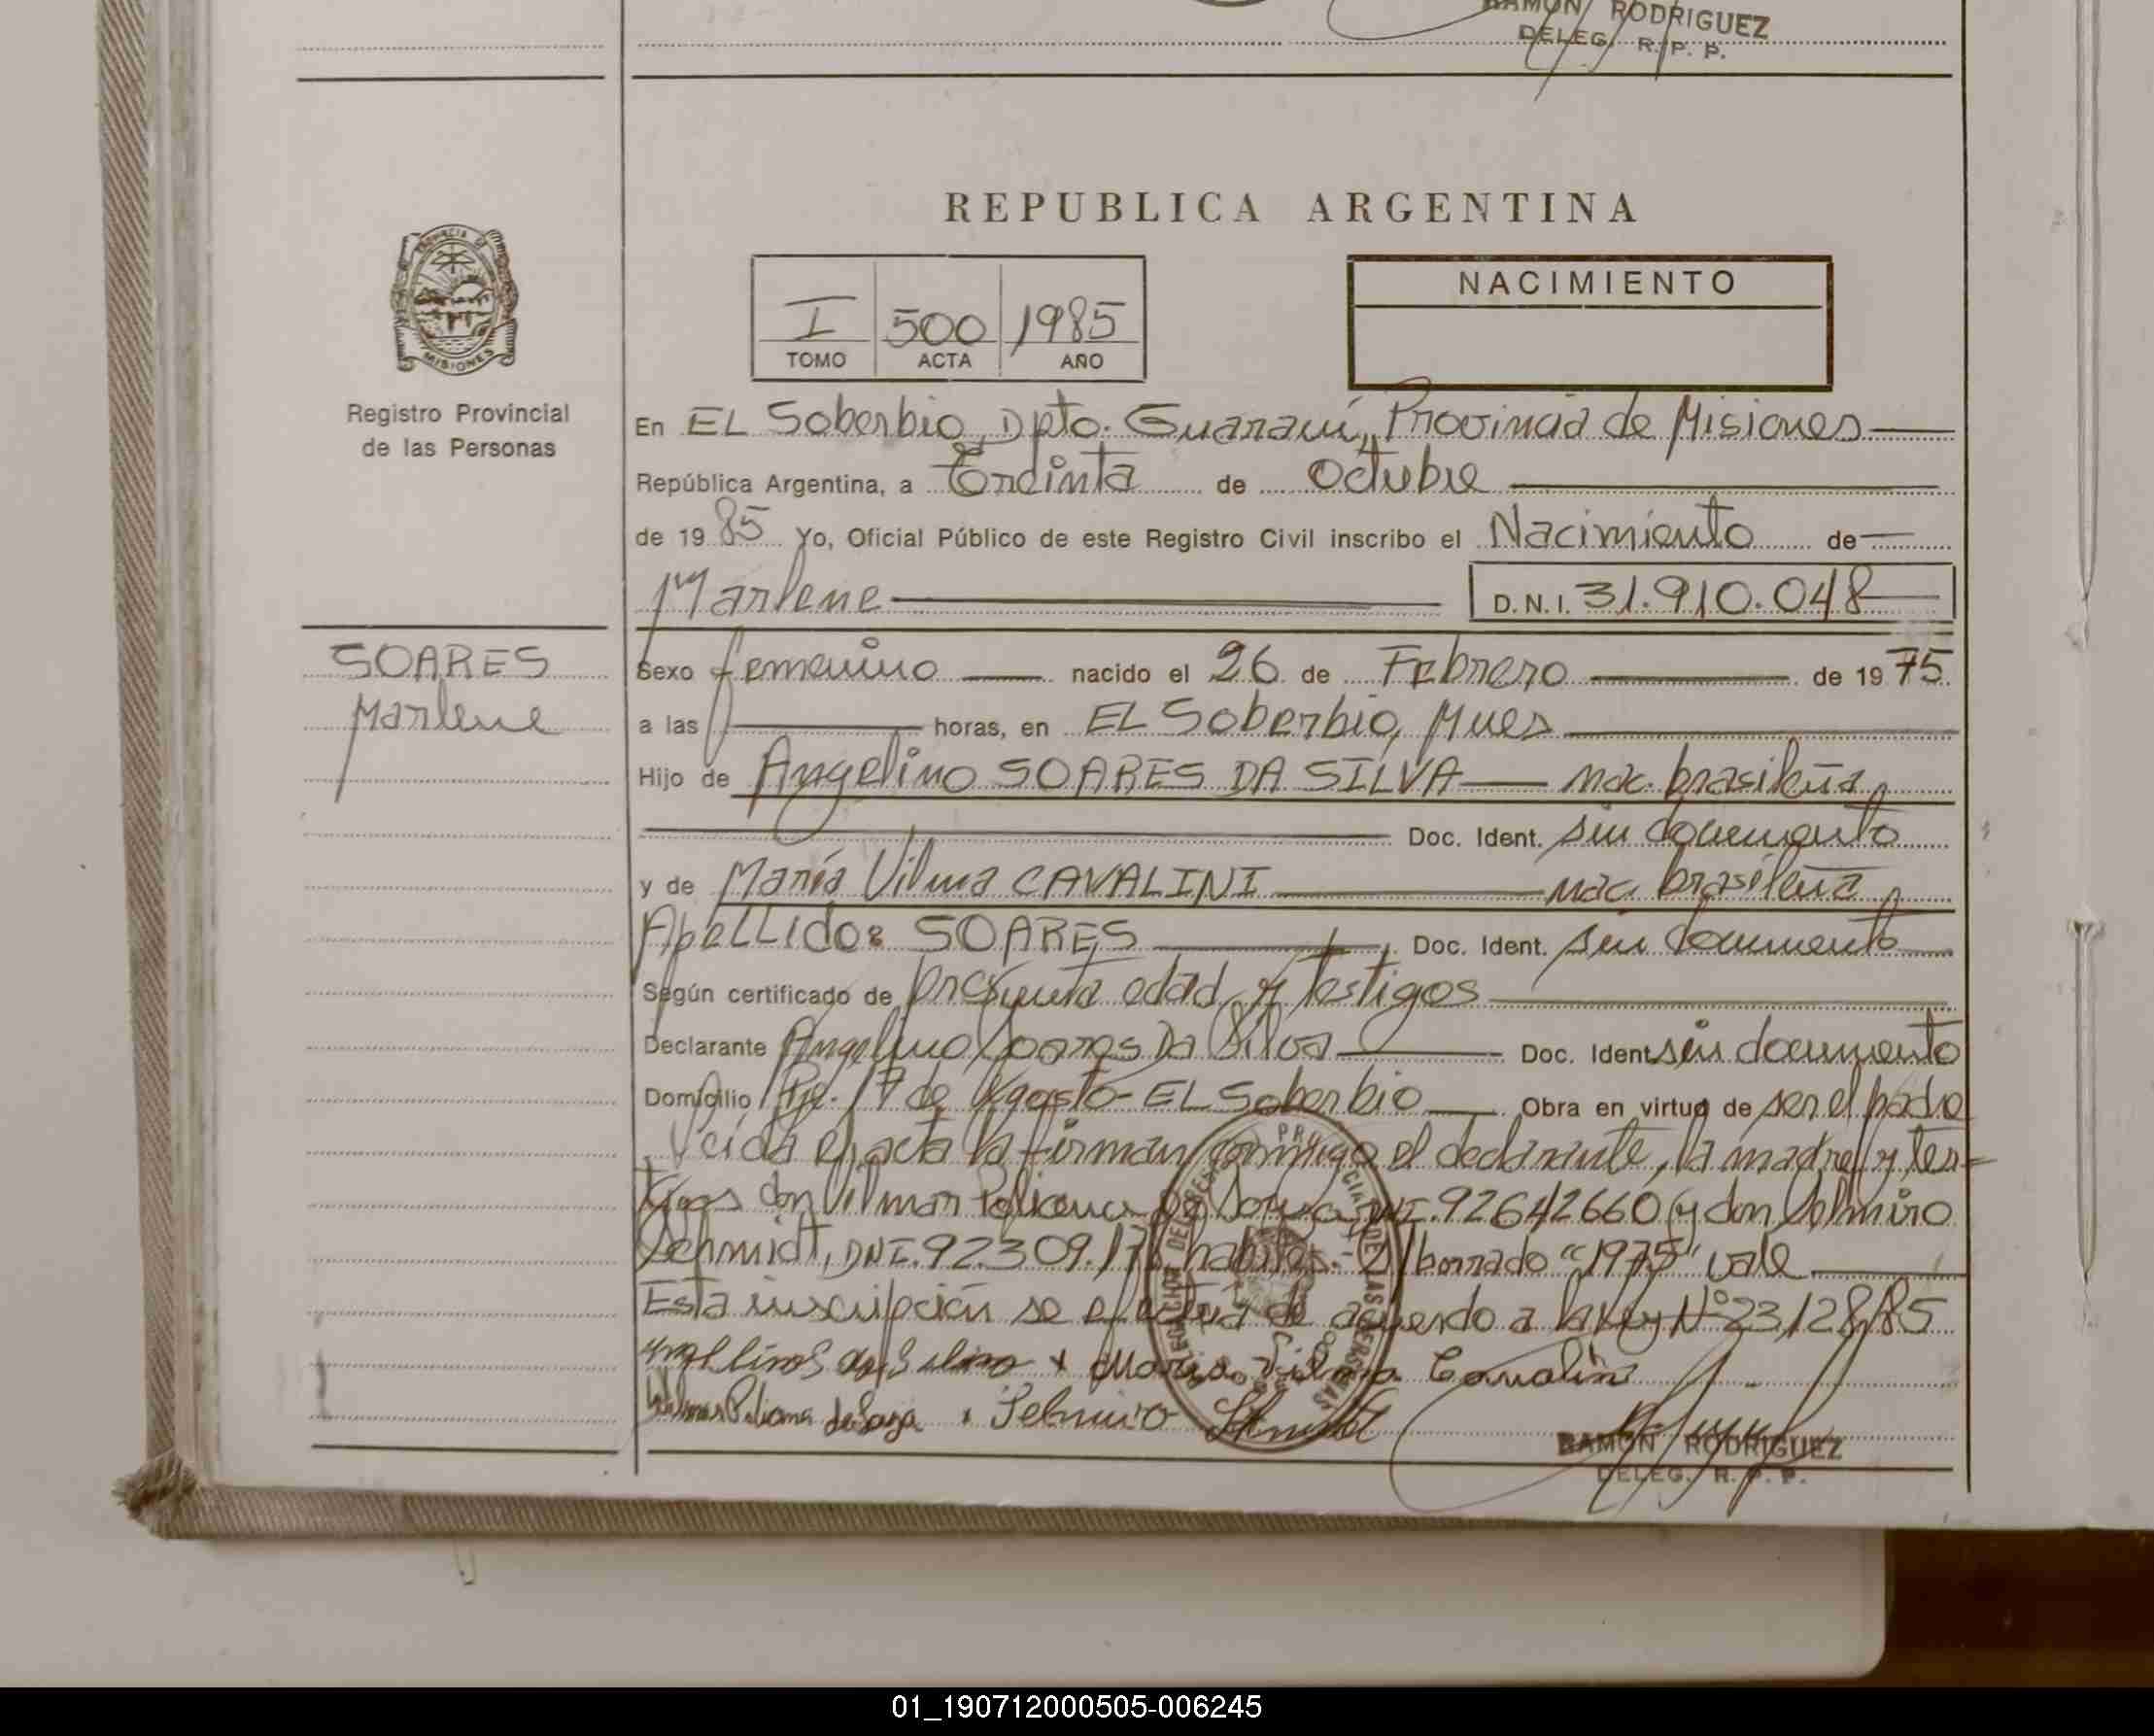 RAMON RODRIGUEZ
DELEG. R. P. P.
REPUBLICA ARGENTINA
PROVINCIA DE
MISIONES
NACIMIENTO
I 500 1985
TOMO ACTA AÑO
Registro Provincial
de las Personas
En EL Soberbio, Dpto. Guaraní, Provincia de Misiones
República Argentina, a Treinta de Octubre
de 19 85 Yo, Oficial Público de este Registro Civil inscribo el Nacimiento de
Marlene D.N.I. 31.910.048
SOARES
Marlene
Sexo femenino nacido el 26 de Febrero de 19 75
a las horas, en EL Soberbio, Mnes
Hijo de Angelino SOARES DA SILVA nac. brasileña
Doc. Ident. sin documento
y de María Vilma CAVALINI nac. brasileña
Apellido: SOARES Doc. Ident. sin documento
Según certificado de presunta edad y testigos
Declarante Angelino Soares Da Silva Doc. Ident sin documento
Domicilio 17 de Agosto - EL Soberbio Obra en virtud de ser el padre
Leída el acta la firman conmigo el declarante, la madre y tes=
tigos don Vilmar Policena de Souza DNI. 92642660 y don Selmiro
Schmidt, DNI. 92.309. habiles. S/borrado "1975" vale
Esta inscripción se efectua de acuerdo a la Ley Nº 23.128/85
x Maria Vilma Cavalini
de Souza Selmiro Schmidt
RAMON RODRIGUEZ
DELEG. R. P. P.
01_190712000505-006245